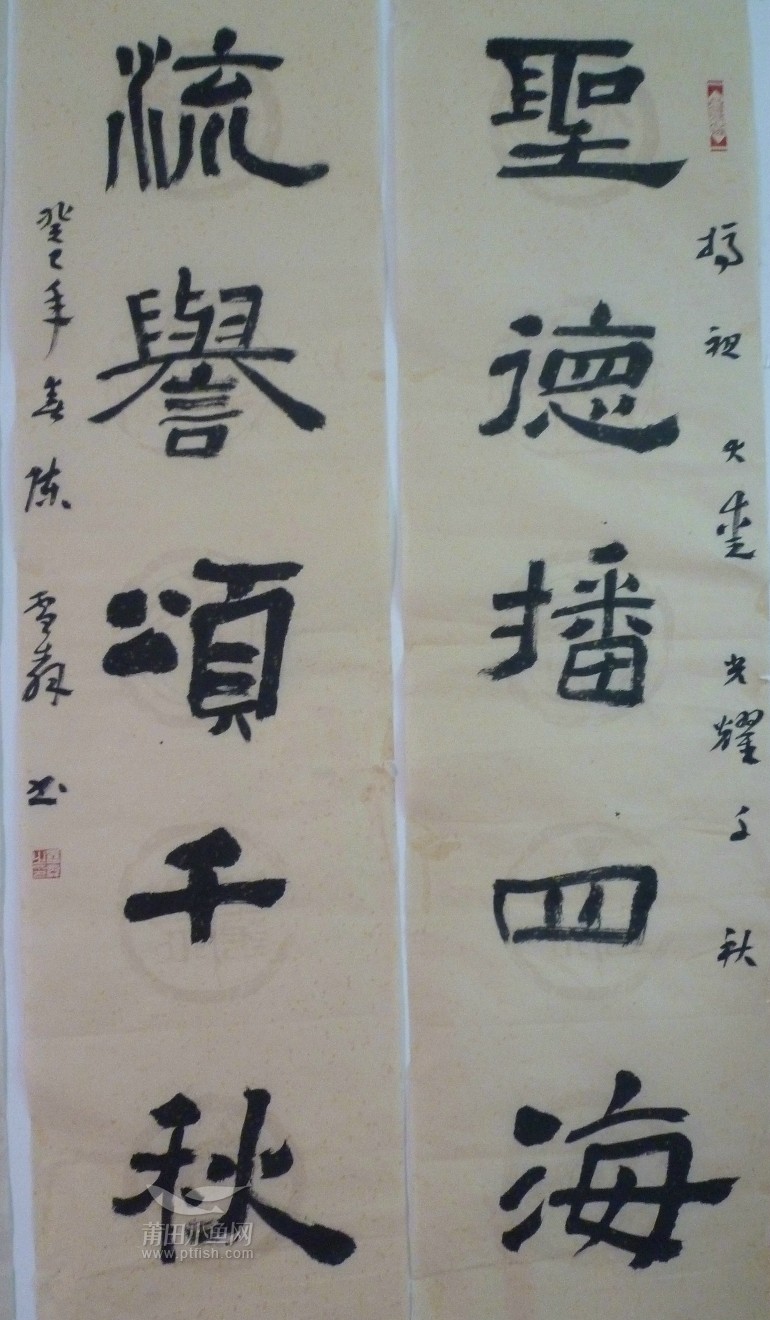 妈祖大爱光耀千秋
聖德播四海
流譽頌千秋
癸巳年春陈雪书
莆田小鱼网
www.ptfish.com